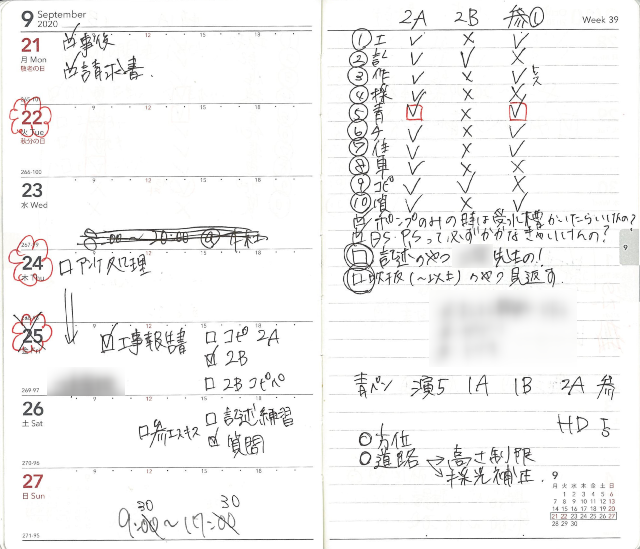 9 September
2020
21
月 Mon
敬老の日
事後
請求書
265-101
22
火 Tue
秋分の日
266-100
23
水 Wed
267-99
24
木 Thu
アンケ処理
25
工事報告書
コピ 2A
2B
2Bコピペ
269-97
26
土 Sat
エスキス
記述練習
質問
270-96
27
日 Sun
30 30
9:00〜17:00
271-95
Week 39
2A 2B 参①
① 工 ✓ × ✓
② 記 ✓ ✓ ×
③ 作 ✓ × ✓
④ 探 ✓ × ×
⑤ 青 ✓ × ✓
⑥ チ ✓ × ✓
⑦ 住 ✓ × ✓
⑧ 車 ✓ × ×
⑨ コピ ✓ ✓ ×
⑩ 質 ✓ × ✓
ポンプのみの時は受水槽かいたらいけんの?
DS・PSって必ずかかなきゃいけんの?
記述のやつ 先生の!
(〜以上)のやつ見返す
青ペン 演5 1A 1B 2A 参
HD
方位
道路→高さ制限
→採光補正
9
月 火 水 木 金 土 日
1 2 3 4 5 6
7 8 9 10 11 12 13
14 15 16 17 18 19 20
21 22 23 24 25 26 27
28 29 30
9